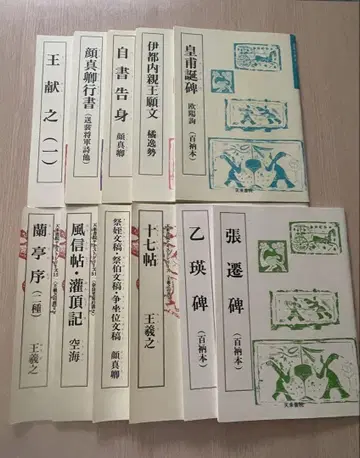 皇甫誕碑
欧陽詢
(百衲本)
天来書院
伊都内親王願文
橘逸勢
自書告身
顔真卿
顔真卿行書
(送裴将軍詩他)
王献之(一)
張遷碑
(百衲本)
天来書院
乙瑛碑
(百衲本)
十七帖
王羲之
祭姪文稿・祭伯文稿・争坐位文稿
顔真卿
風信帖・灌頂記
空海
蘭亭序(二種)
王羲之